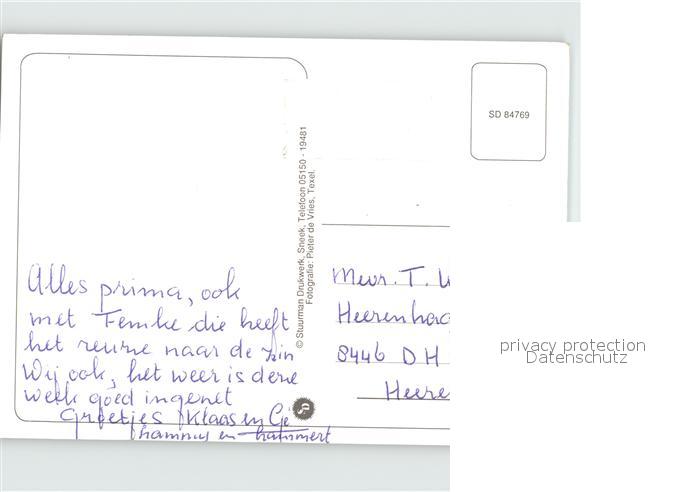 SD 84769
© Stuurman Drukwerk, Sneek, Telefoon 05150 - 19481
Fotografie: Pieter de Vries, Texel.
Alles prima, ook
met Femke die heeft
het reurne naar de zin
Wij ook, het weer is deze
week goed ingenet
Groetjes Klaas en Ge
en
Mevr. T.
Heerenhag
8446 DH
Heere
privacy protection
Datenschutz